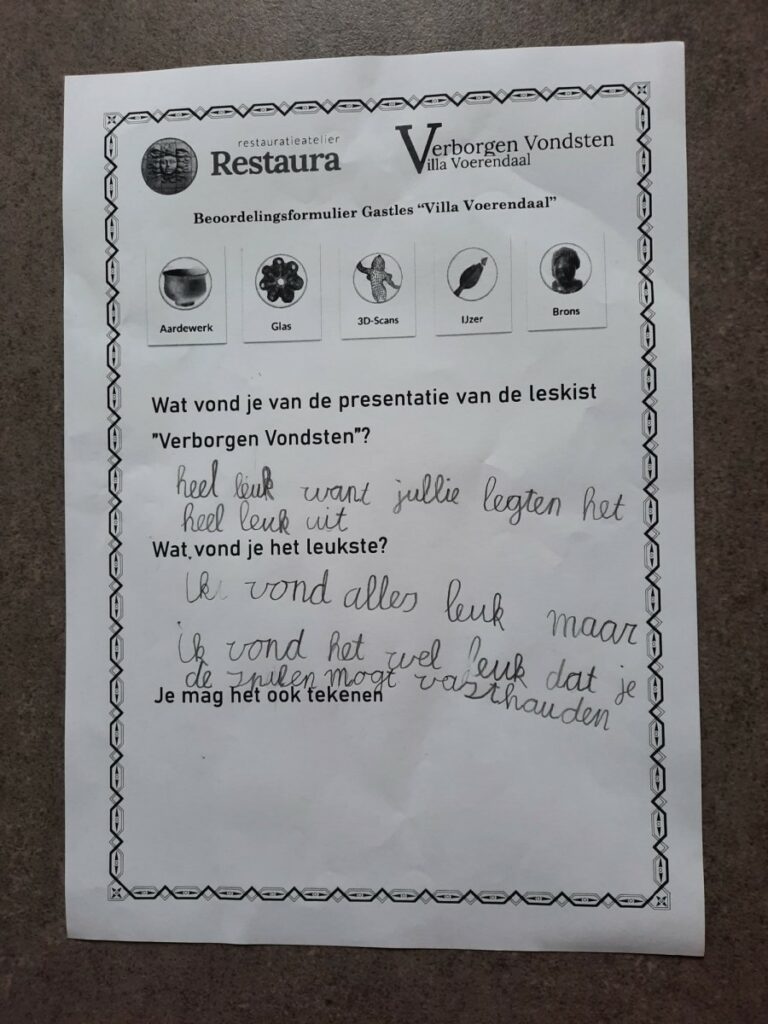 restauratieatelier
Restaura
Verborgen Vondsten
Villa Voerendaal
Beoordelingsformulier Gastles "Villa Voerendaal"
Aardewerk
Glas
3D-Scans
IJzer
Brons
Wat vond je van de presentatie van de leskist
"Verborgen Vondsten"?
heel leuk want jullie legten het
heel leuk uit
Wat vond je het leukste?
Ik vond alles leuk maar
ik vond het wel leuk dat je
de spullen mogt vasthauden
Je mag het ook tekenen